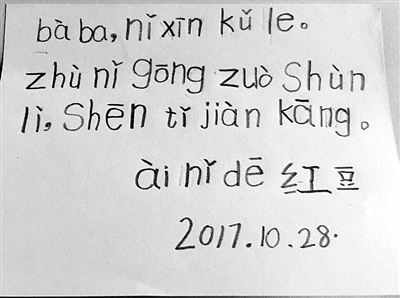 bàba,nǐxīn kǔ le。
zhù nǐ gōng zuò Shùn
lì, Shēn tǐ jiàn kāng。
ài nǐ dē 红豆
2017.10.28.